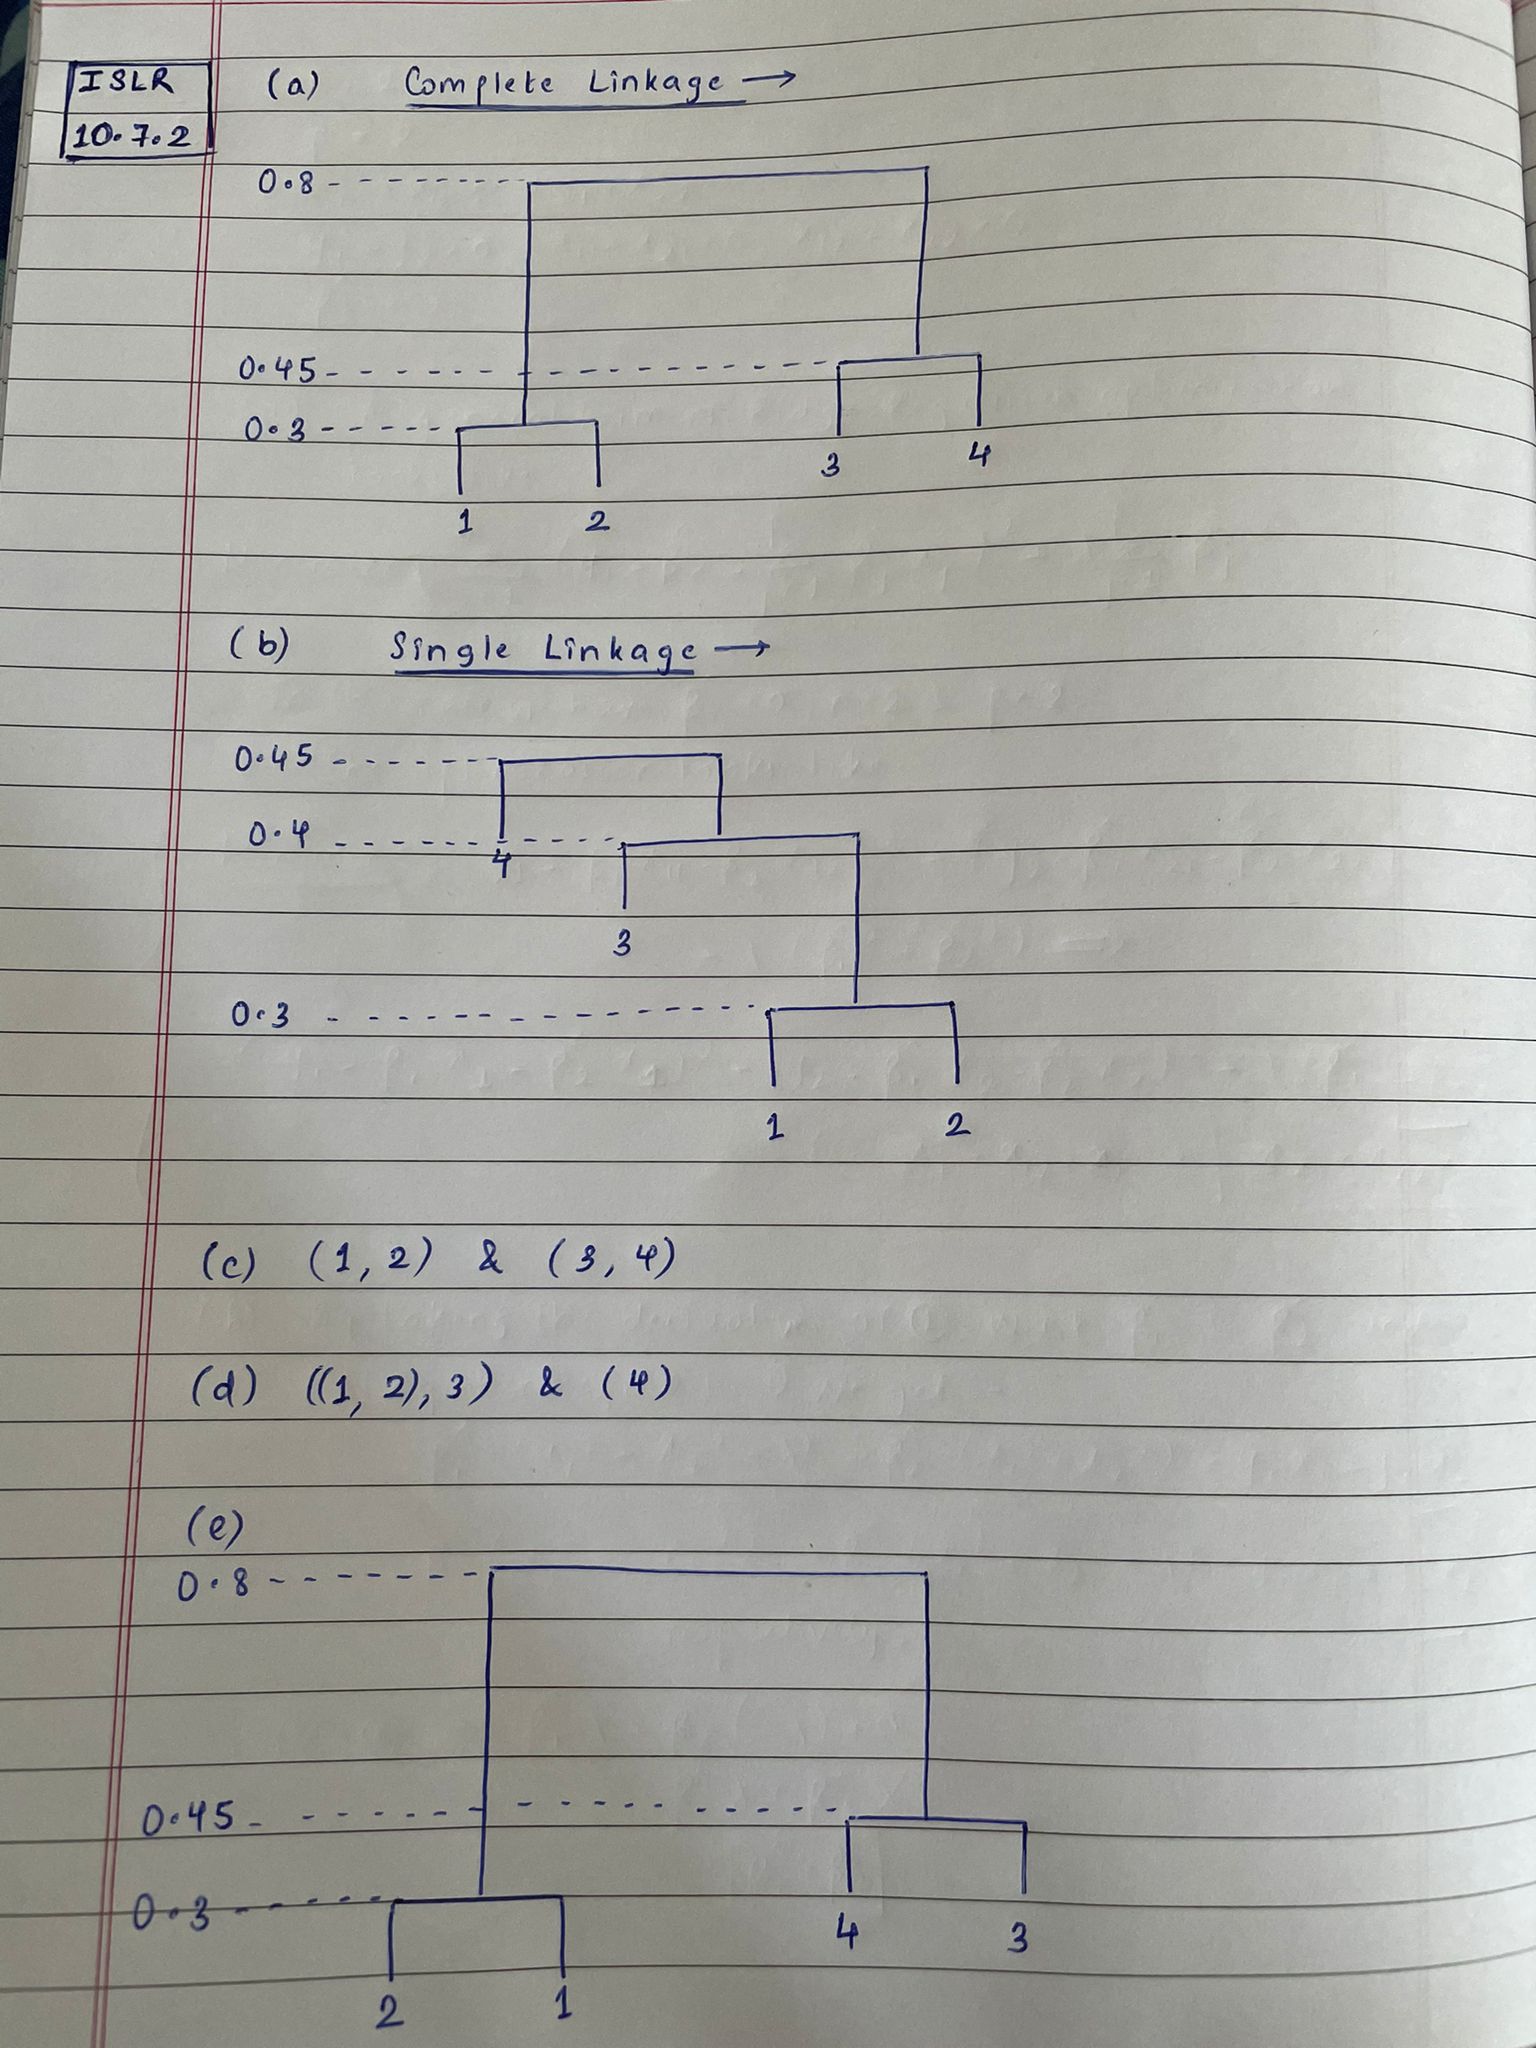 ISLR
10.7.2
(a) Complete Linkage →
0.8
0.45
0.3
3 4
1 2
(b) Single Linkage →
0.45
0.4
4
3
0.3
1 2
(c) (1, 2) & (3, 4)
(d) ((1, 2), 3) & (4)
(e)
0.8
0.45
0.3
4 3
2 1